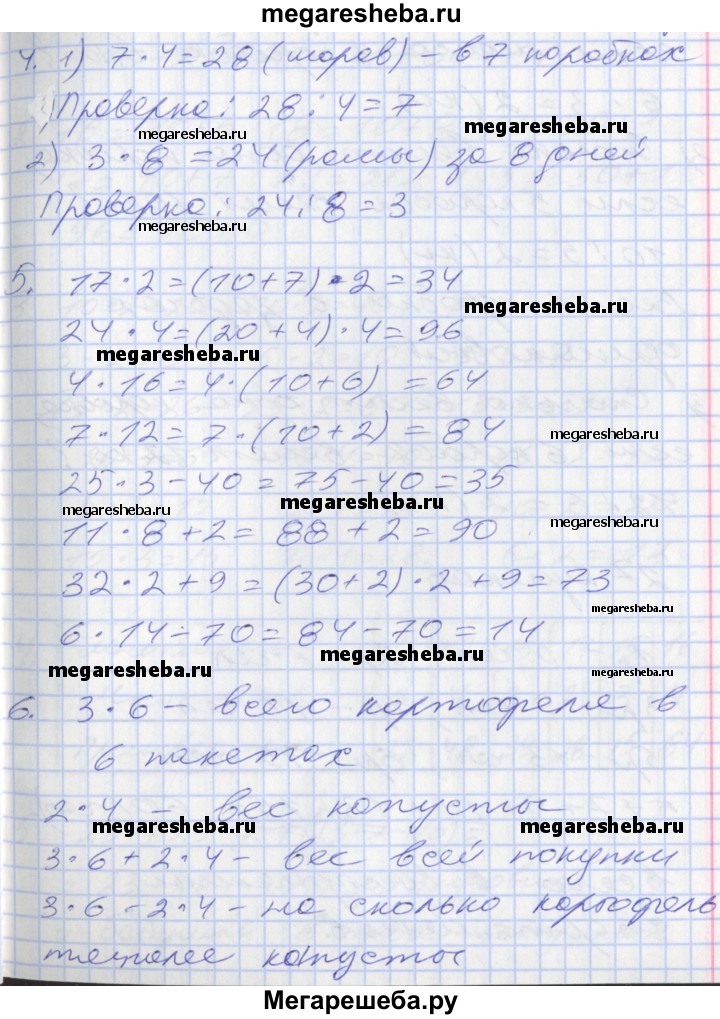 megaresheba.ru
4. 1) 7 · 4 = 28 (шаров) – в 7 коробках
Проверка: 28 : 4 = 7
megaresheba.ru
megaresheba.ru
2) 3 · 8 = 24 (рамы) за 8 дней
Проверка: 24 : 8 = 3
megaresheba.ru
5. 17 · 2 = (10 + 7) · 2 = 34
megaresheba.ru
24 · 4 = (20 + 4) · 4 = 96
megaresheba.ru
4 · 16 = 4 · (10 + 6) = 64
7 · 12 = 7 · (10 + 2) = 84
megaresheba.ru
25 · 3 – 40 = 75 – 40 = 35
megaresheba.ru
megaresheba.ru
11 · 8 + 2 = 88 + 2 = 90
megaresheba.ru
32 · 2 + 9 = (30 + 2) · 2 + 9 = 73
megaresheba.ru
6 · 14 – 70 = 84 – 70 = 14
megaresheba.ru
megaresheba.ru
megaresheba.ru
6. 3 · 6 – всего картофеля в
6 пакетах
2 · 4 – вес капусты
megaresheba.ru
megaresheba.ru
3 · 6 + 2 · 4 – вес всей покупки
3 · 6 – 2 · 4 – на сколько картофель
тяжелее капусты
Мегарешеба.ру